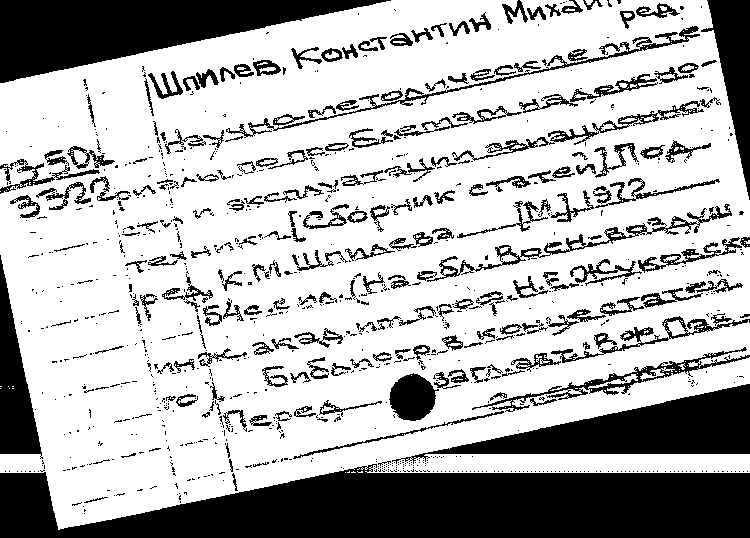 Шпилев, Константин Михай
ред.
Научно-методические мате-
риалы по проблемам надежно-
сти и эксплуатации авиационной
техники. [Сборник статей]. Под
ред. К.М. Шпилева. [М.], 1972
54с. с ил. (На обл.: Воен.-воздуш.
инж. акад. им. проф. Н.Е. Жуковско
го). Библиогр. в конце статей
Перед загл. авт.: В.Ф. Пав
73-50к
3322